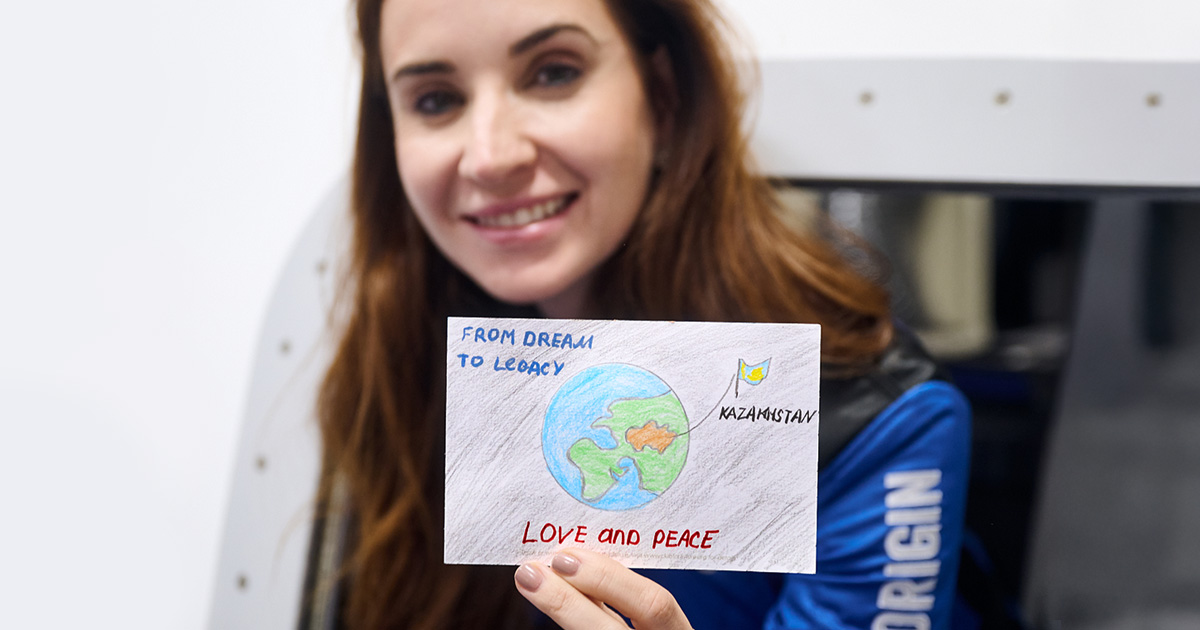 FROM DREAM
TO LEGACY
KAZAKHSTAN
LOVE and PEACE
ORIGIN